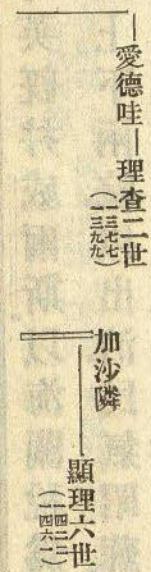 愛德哇—理查二世
(一三七七
一三九九)
加沙隣
顯理六世
(一四二二
一四六一)